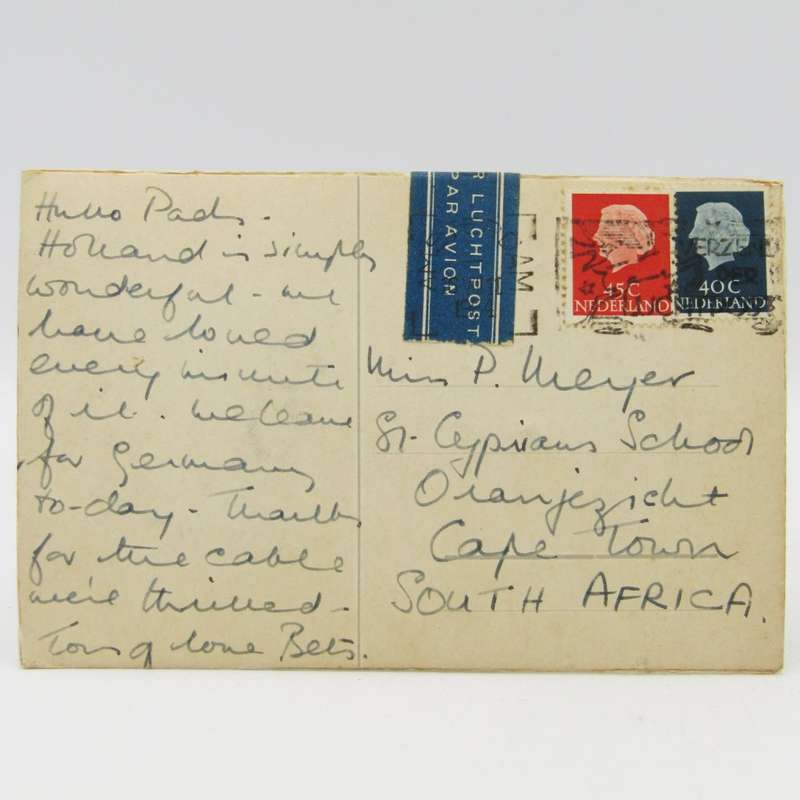 Hullo Pads -
Holland is simply
wonderful - we
have loved
every minute
of it. We leave
for Germany
to-day - Thanks
for the cable
we're thrilled -
Tons of love Bets.
R LUCHTPOST
PAR AVION
AM
VERZEND
PER
45C
NEDERLAND
40C
NEDERLAND
Miss P. Meyer
St. Cyprians School
Oranjezicht
Cape Town
SOUTH AFRICA.